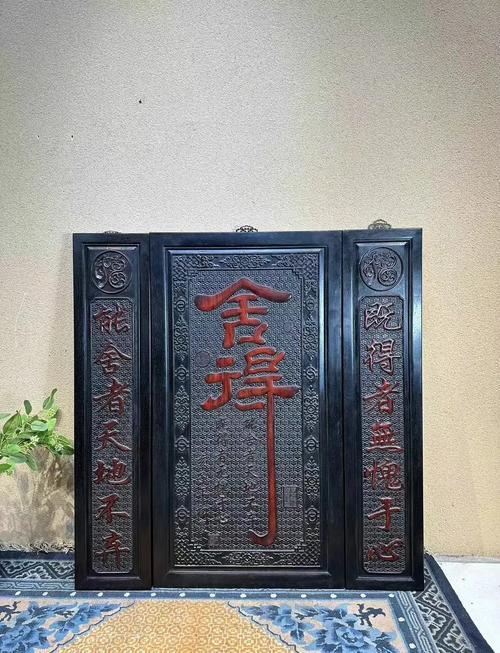 能舍者天地不弃
舍得
既得者無愧于心